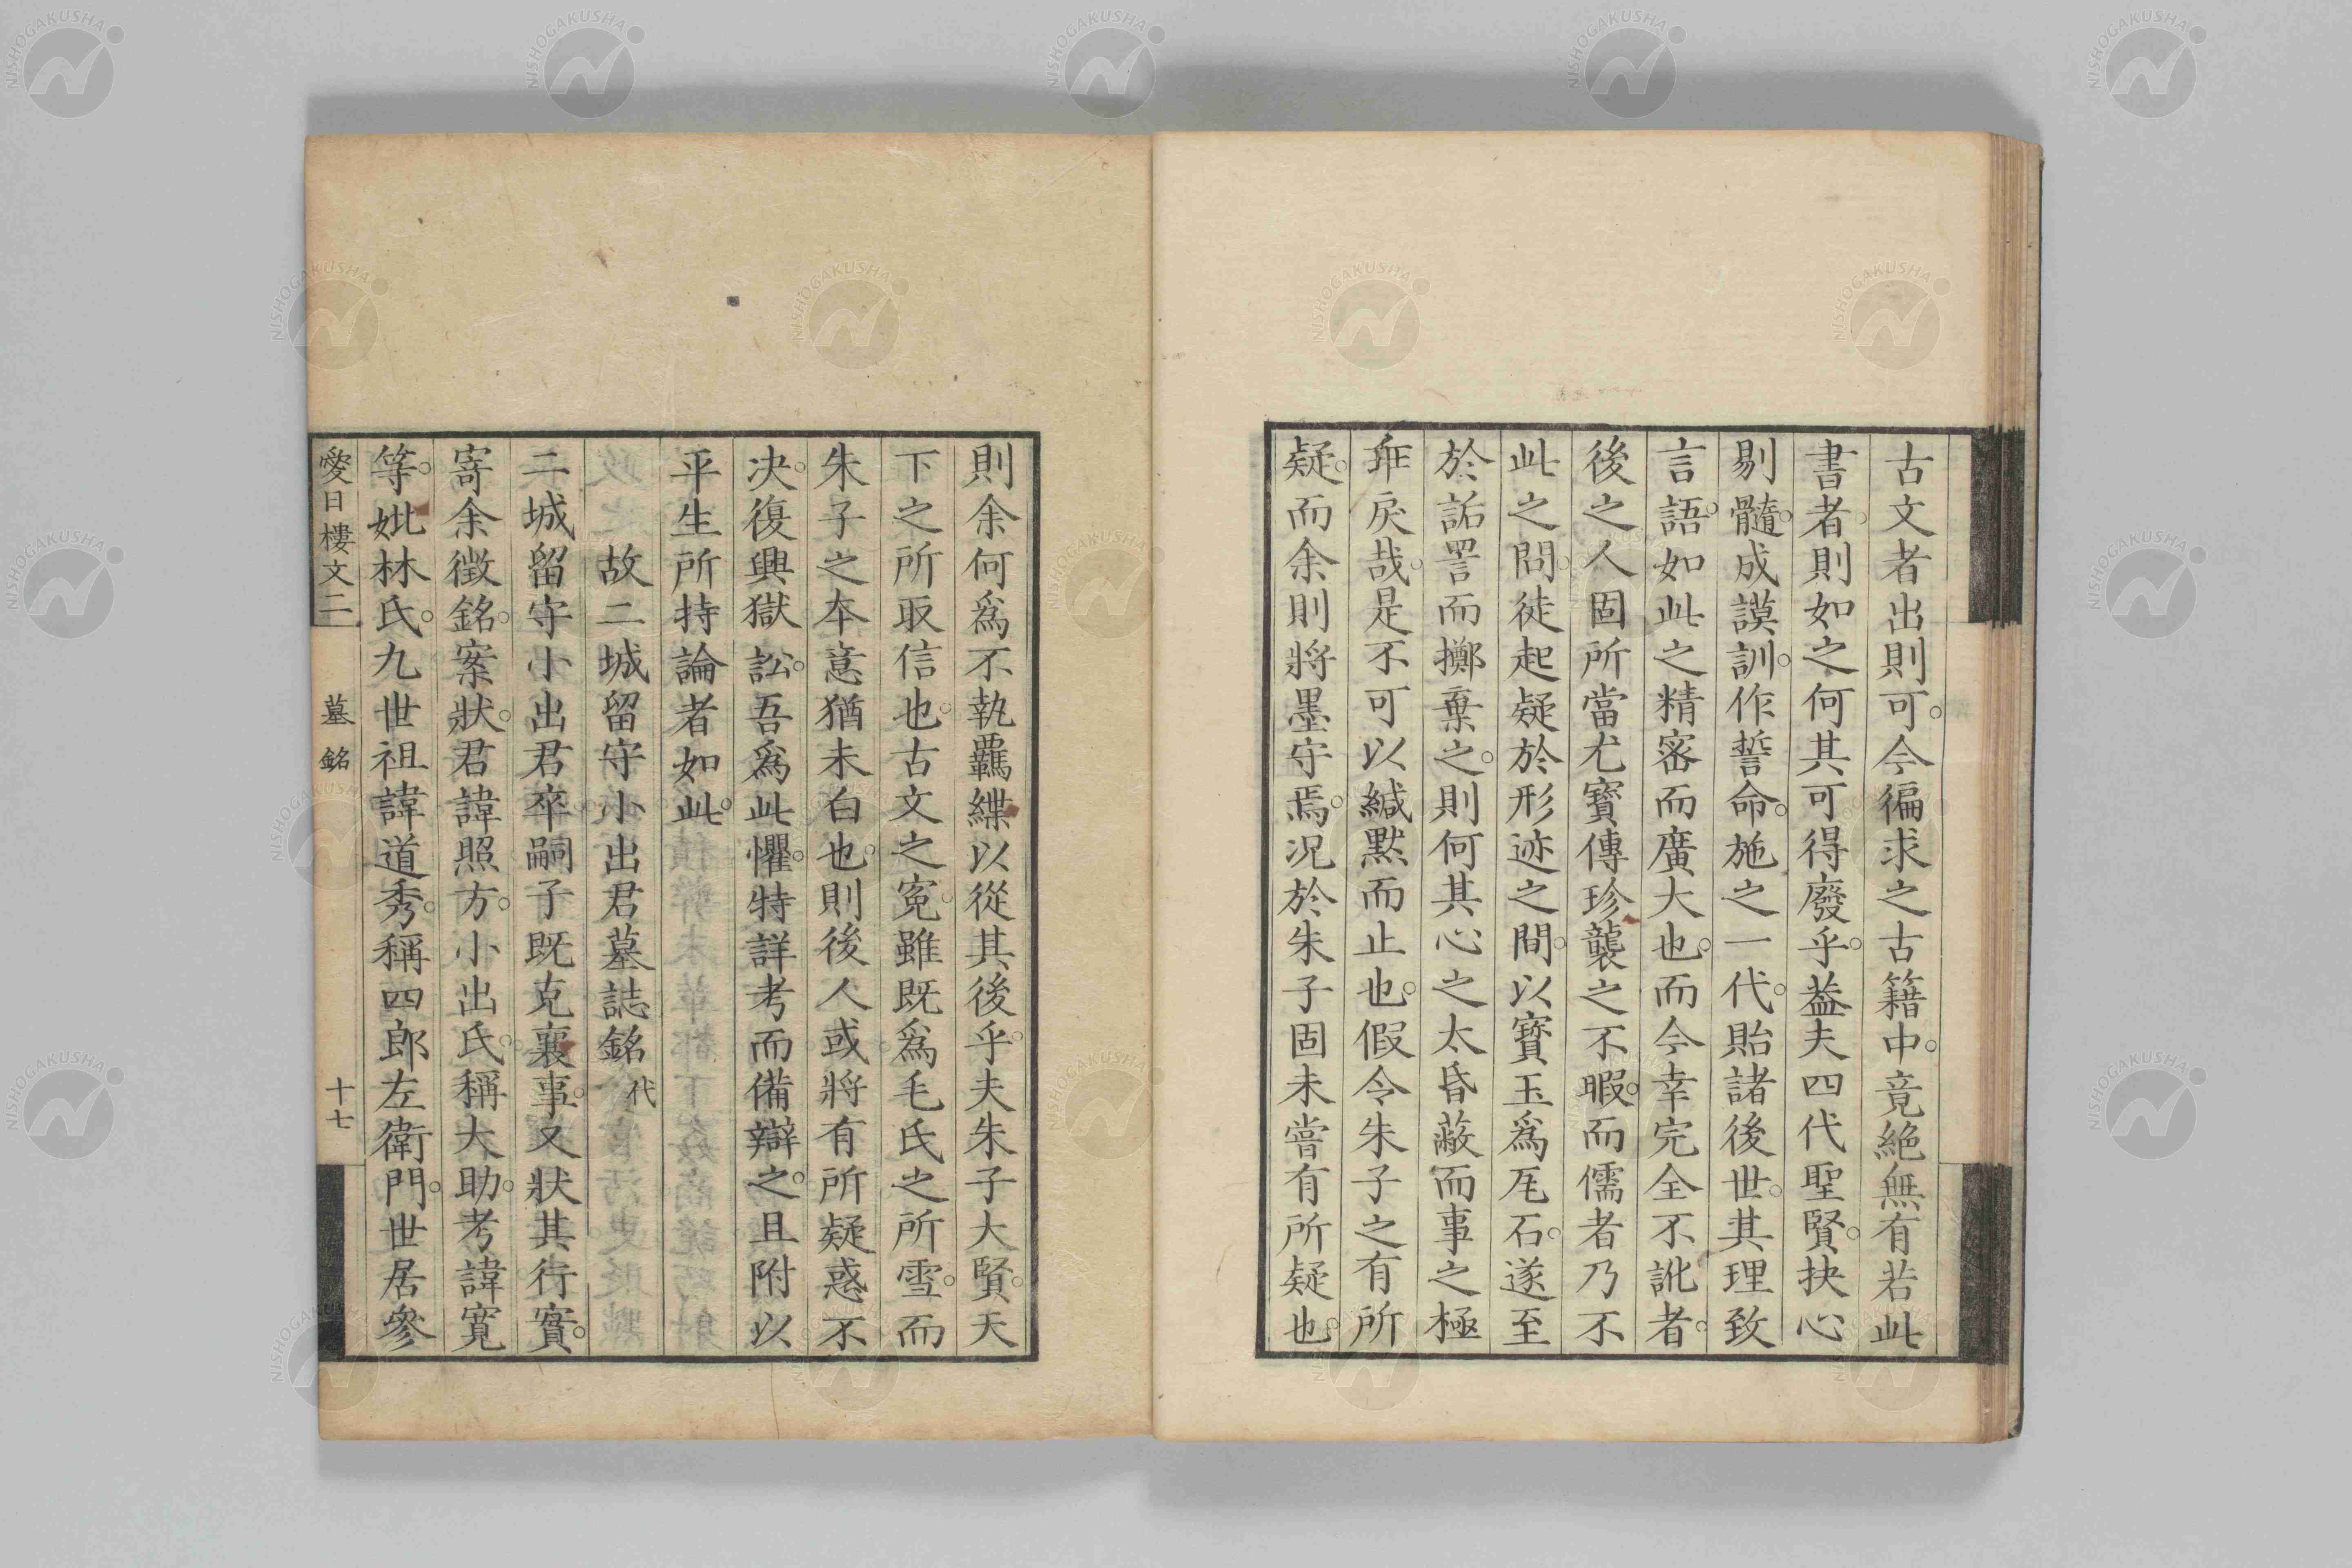 古文者出則可。今徧求之古籍中。竟絶無有若此
書者。則如之何其可得廢乎。蓋夫四代聖賢。抉心
剔髓。成謨訓。作誓命。施之一代。貽諸後世。其理致
言語。如此之精密而廣大也。而今幸完全不訛者。
後之人固所當尤寳傳珍襲之不暇。而儒者乃不
此之問。徒起疑於形迹之間。以寳玉爲瓦石。遂至
於詬詈而擲棄之。則何其心之太昏蔽而事之極
乖戾哉。是不可以緘默而止也。假令朱子之有所
疑。而余則將墨守焉。况於朱子固未嘗有所疑也。
則余何爲不執羈緤以從其後乎。夫朱子大賢。天
下之所取信也。古文之寃。雖既爲毛氏之所雪。而
朱子之本意猶未白也。則後人或將有所疑惑不
决。復興獄訟。吾爲此懼。特詳考而備辯之。且附以
平生所持論者如此。
故二城留守小出君墓誌銘 代
二城留守小出君卒。嗣子既克襄事。又狀其行實。
寄余徴銘。案狀。君諱照方。小出氏。稱大助。考諱寛
等。妣林氏。九世祖諱道秀。稱四郎左衛門。世居參
愛日樓文二 墓銘 十七